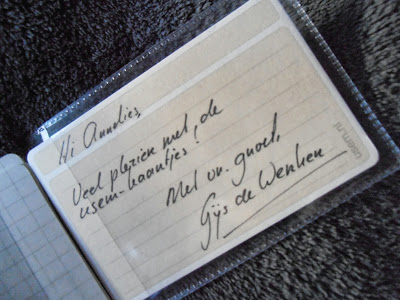 Hi Annelies,
Veel plezier met de
usem-kaartjes!
Met vr. groet,
Gijs de Wenken
usem.nl